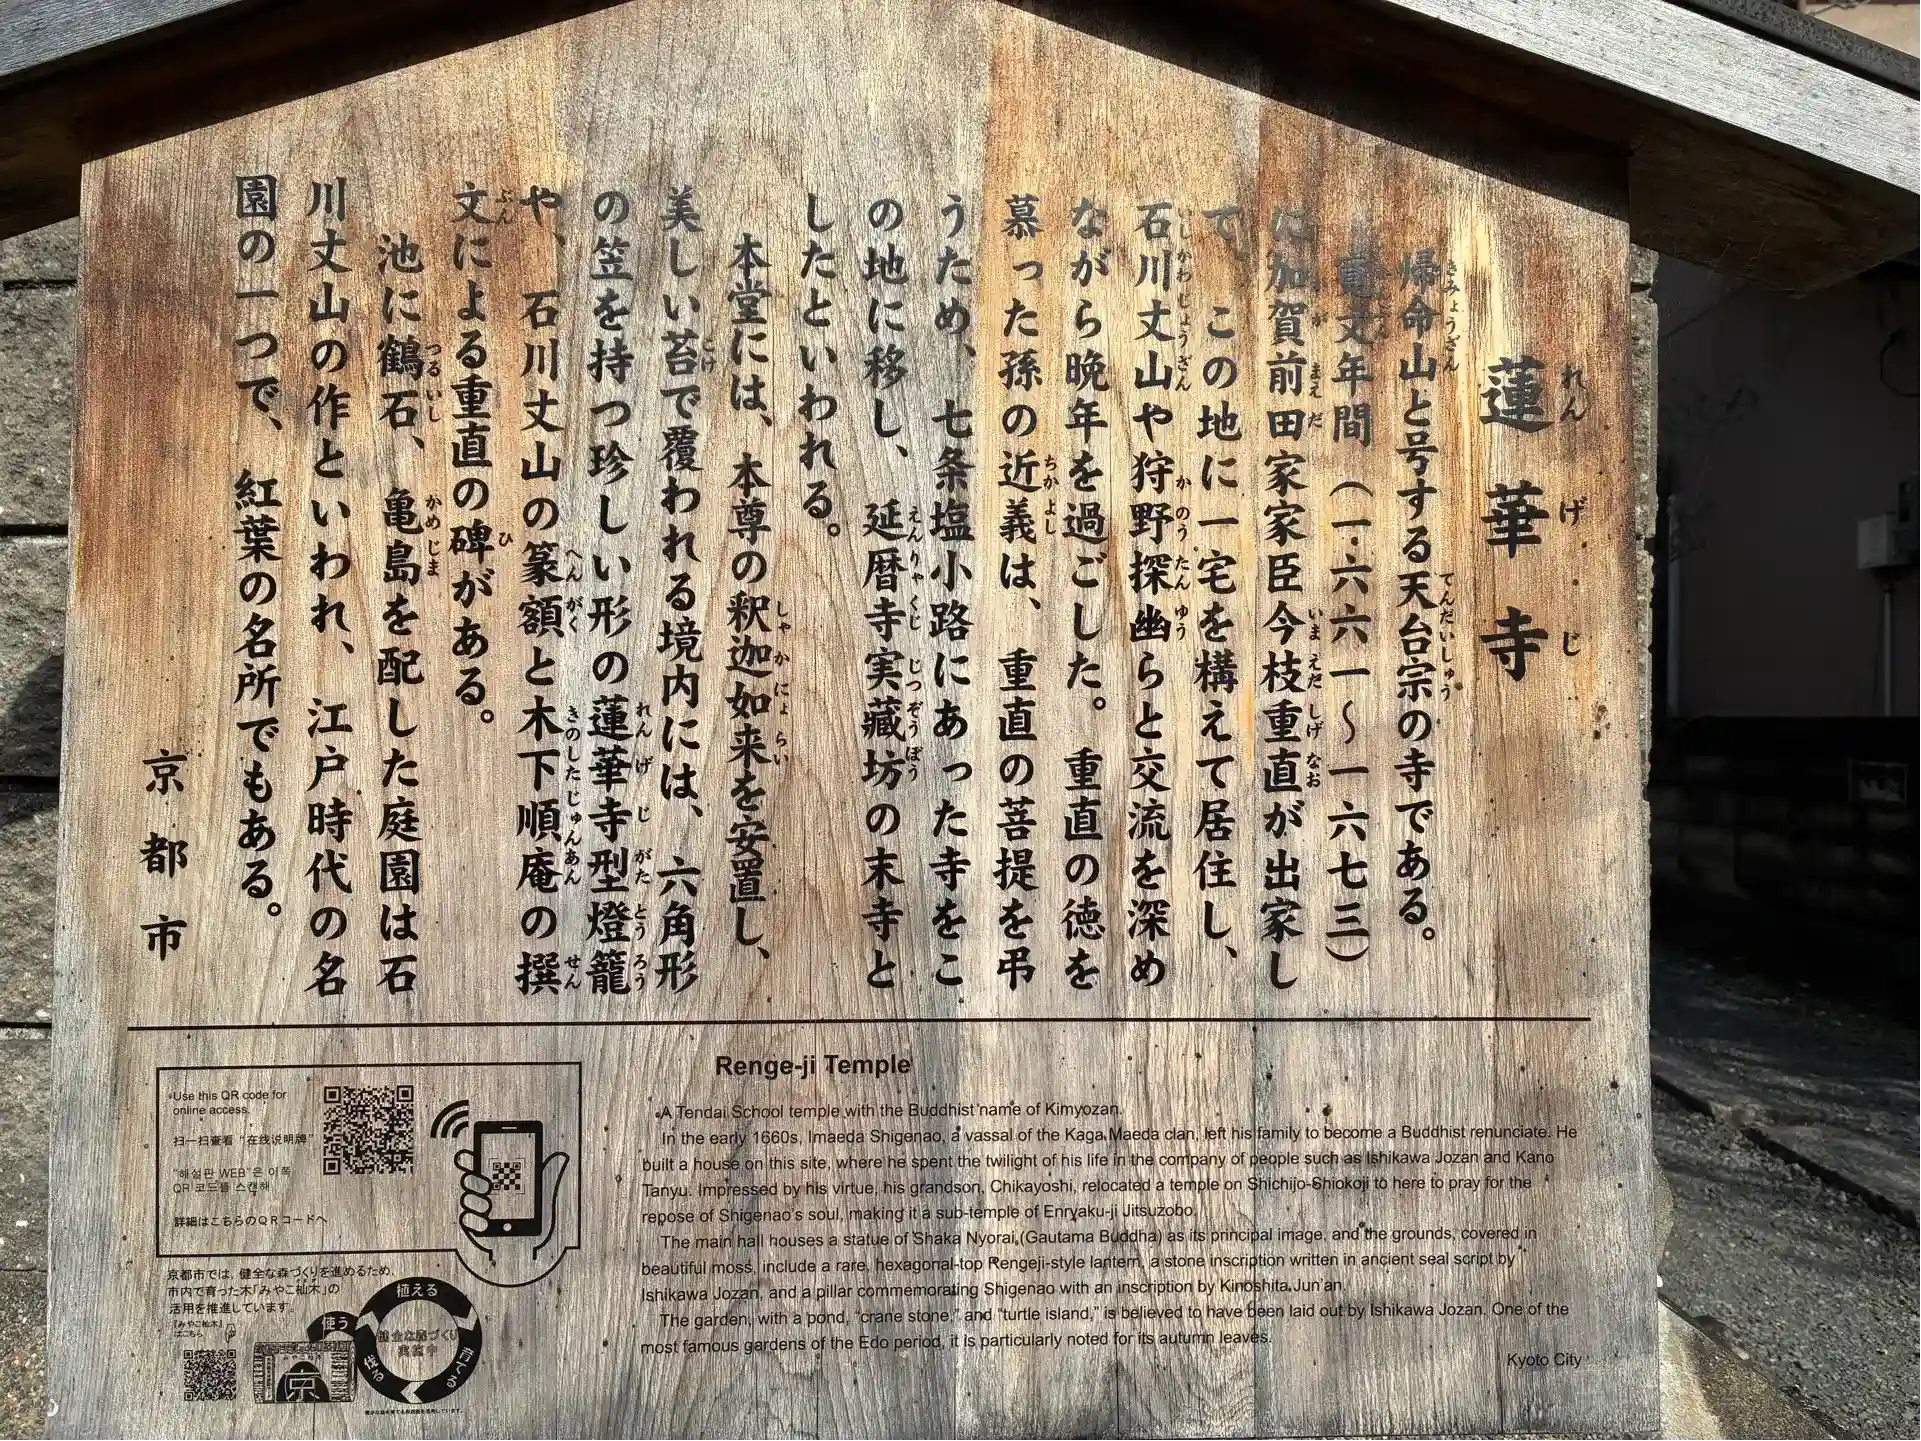 蓮華寺
れんげじ
帰命山と号する天台宗の寺である。
きみょうざん
てんだいしゅう
寛文年間(一六六一〜一六七三)
に加賀前田家家臣今枝重直が出家し
が まえだ いまえだしげなお
て、この地に一宅を構えて居住し、
石川丈山や狩野探幽らと交流を深め
いしかわじょうざん かのうたんゆう
ながら晩年を過ごした。重直の徳を
慕った孫の近義は、重直の菩提を弔
ちかよし
うため、七条塩小路にあった寺をこ
の地に移し、延暦寺実蔵坊の末寺と
えんりゃくじ じつぞうぼう
したといわれる。
本堂には、本尊の釈迦如来を安置し、
しゃかにょらい
美しい苔で覆われる境内には、六角形
こけ
の笠を持つ珍しい形の蓮華寺型燈籠
れんげじがたとうろう
や、石川丈山の篆額と木下順庵の撰
へんがく きのしたじゅんあん せん
文による重直の碑がある。
ぶん ひ
池に鶴石、亀島を配した庭園は石
つるいし かめじま
川丈山の作といわれ、江戸時代の名
園の一つで、紅葉の名所でもある。
京都市
Use this QR code for
online access.
扫一扫查看"在线说明牌"
"해설판 WEB"은 이쪽
QR 코드를 스캔해
詳細はこちらのQRコードへ
京都市では、健全な森づくりを進めるため、
市内で育った木「みやこ杣木」の
活用を推進しています。
「みやこ杣木」
はこちら
使う
植える
育てる
伐る
健全な森づくり
実施中
京
Renge-ji Temple
A Tendai School temple with the Buddhist name of Kimyozan.
In the early 1660s, Imaeda Shigenao, a vassal of the Kaga Maeda clan, left his family to become a Buddhist renunciate. He
built a house on this site, where he spent the twilight of his life in the company of people such as Ishikawa Jozan and Kano
Tanyu. Impressed by his virtue, his grandson, Chikayoshi, relocated a temple on Shichijo-Shiokoji to here to pray for the
repose of Shigenao's soul, making it a sub-temple of Enryaku-ji Jitsuzobo.
The main hall houses a statue of Shaka Nyorai (Gautama Buddha) as its principal image, and the grounds, covered in
beautiful moss, include a rare, hexagonal-top Rengeji-style lantern, a stone inscription written in ancient seal script by
Ishikawa Jozan, and a pillar commemorating Shigenao with an inscription by Kinoshita Jun'an.
The garden, with a pond, "crane stone," and "turtle island," is believed to have been laid out by Ishikawa Jozan. One of the
most famous gardens of the Edo period, it is particularly noted for its autumn leaves.
Kyoto City